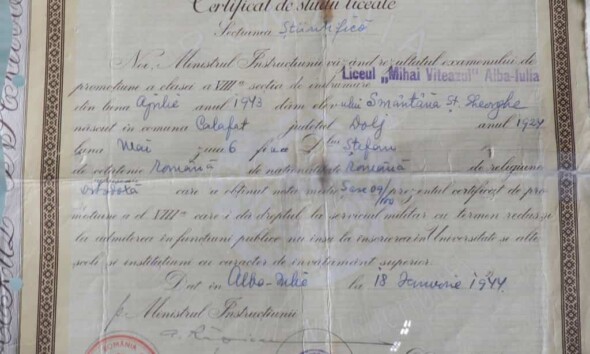 Certificat de studii liceale
Secțiunea Științifică
Noi, Ministrul Instrucțiunii văzând rezultatul examenului de
promoțiune a clasei a VIII-a secția de îndrumare
Liceul „Mihai Viteazul" Alba-Iulia
din luna Aprilie anul 1943 dăm d-lui Smântână Șt. Gheorghe
născut în comuna Calafat județul Dolj anul 1924
luna Mai ziua 6 D-lui Ștefan
de cetățenie Română de naționalitate Română de religiune
ortodoxă care a obținut nota medie prezentul certificat de pro
moțiune a cl. VIII-a care-i dă dreptul la serviciul militar cu termen redus și
la admiterea în funcțiuni publice nu însă la înscrierea în Universitate și alte
școli și instituțiuni cu caracter de învățământ superior.
Dat în Alba-Iulia la 18 Ianuarie 1944.
p. Ministrul Instrucțiunii
ROMÂNIA